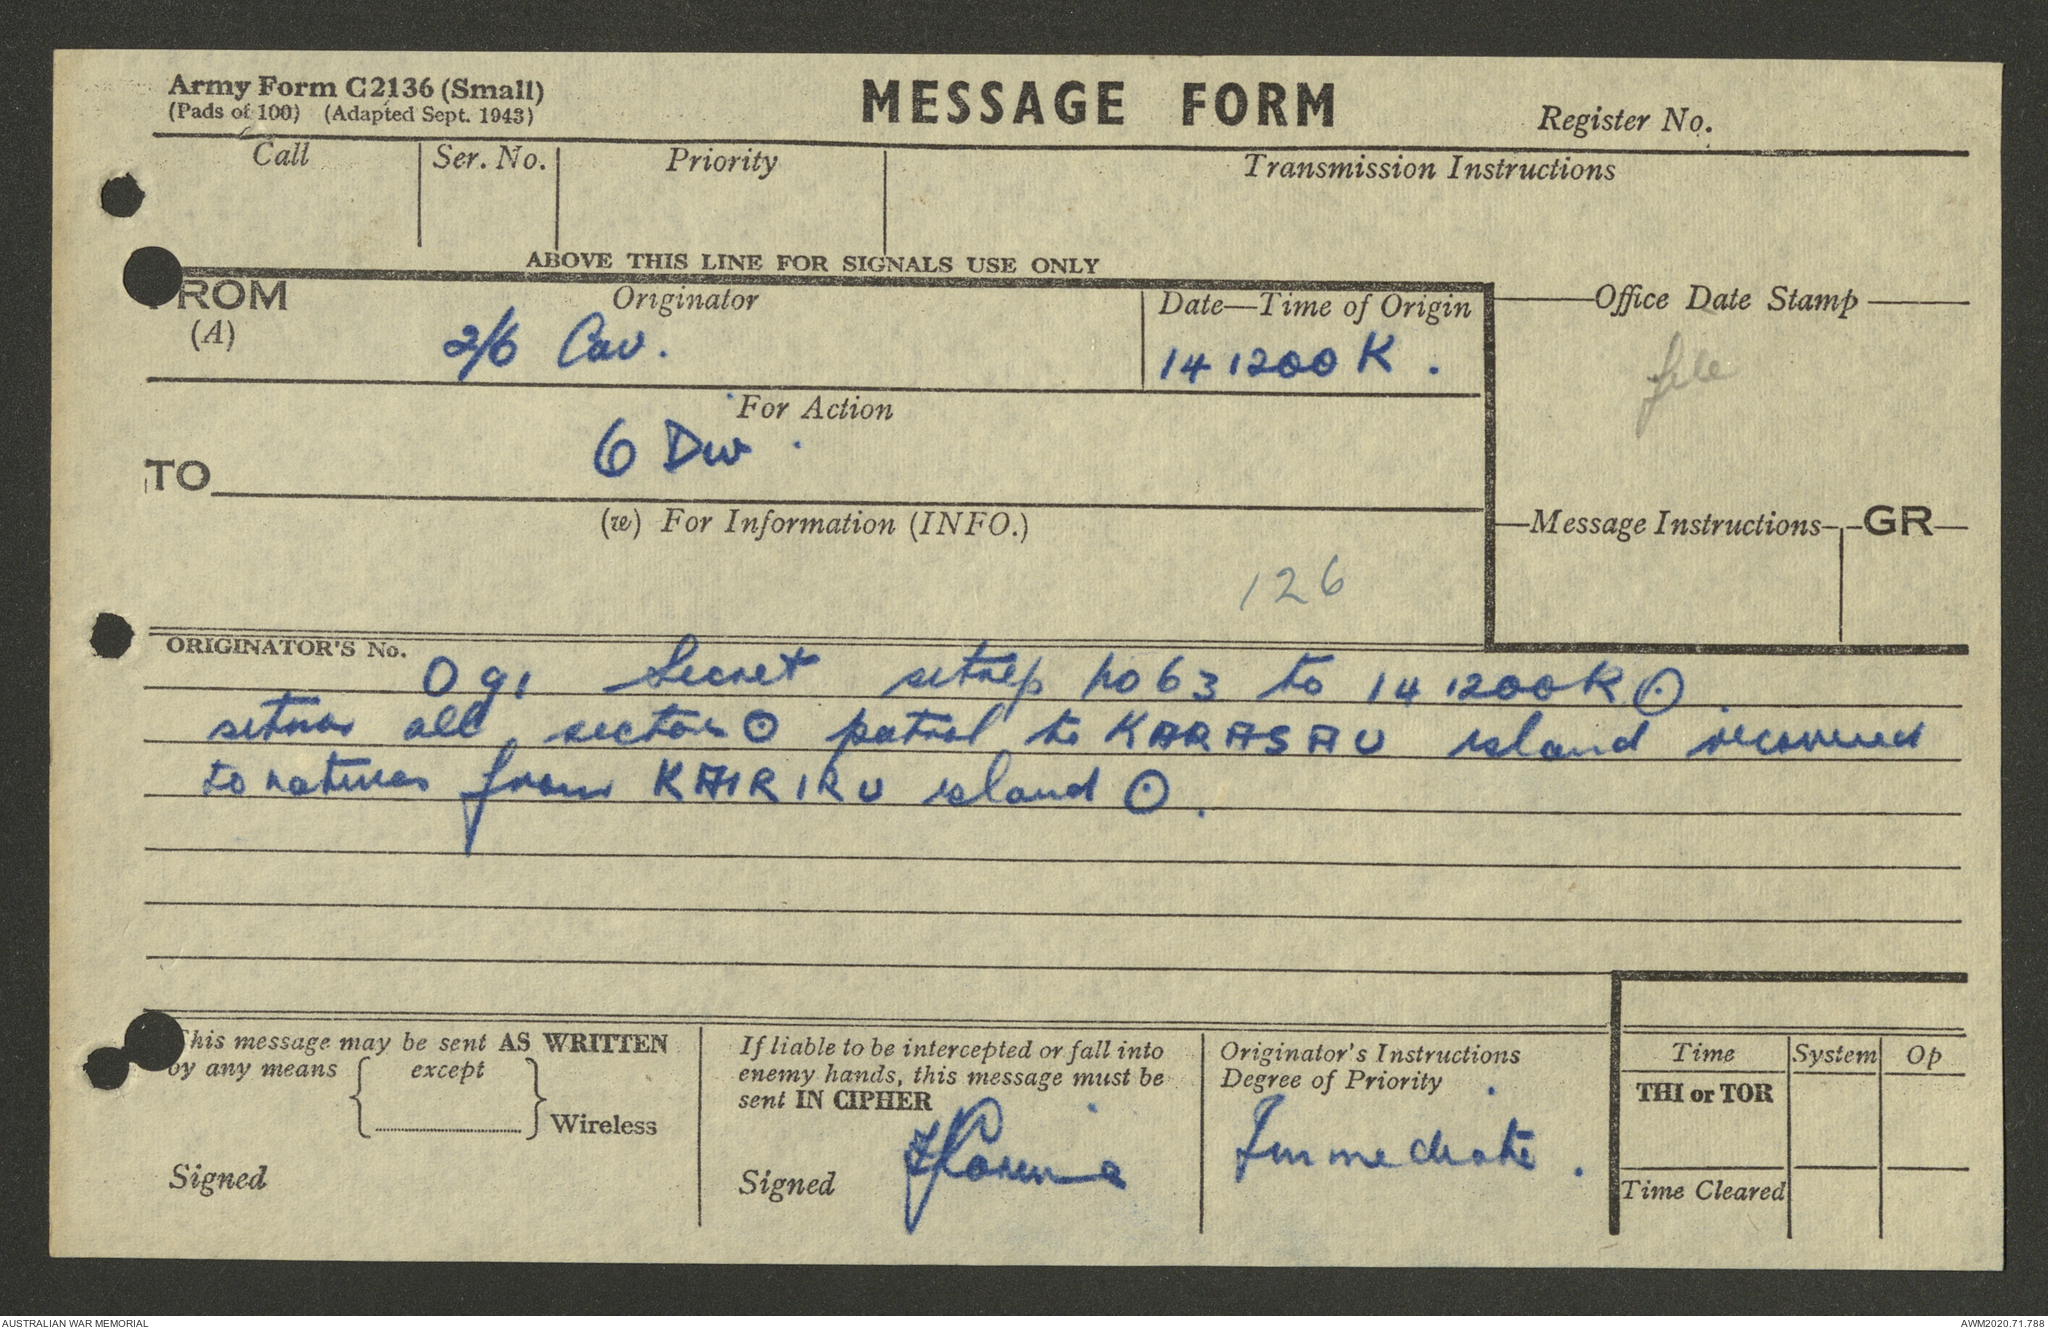 Army Form C2136 (Small)
(Pads of 100) (Adapted Sept. 1943)
MESSAGE FORM
Register No.
Call
Ser. No.
Priority
Transmission Instructions
ABOVE THIS LINE FOR SIGNALS USE ONLY
FROM
(A)
Originator
2/6 Cav.
Date—Time of Origin
141200K.
Office Date Stamp
file
For Action
6 Div.
TO
(w) For Information (INFO.)
126
Message Instructions
GR
ORIGINATOR'S No.
Og1 Secret sitrep no 63 to 141200K ⊙
all sectors ⊙ patrol to KARASAU island recovered
10 natives from KAIRIRU island ⊙.
This message may be sent AS WRITTEN
by any means except
Wireless
Signed
If liable to be intercepted or fall into
enemy hands, this message must be
sent IN CIPHER
Signed
Originator's Instructions
Degree of Priority
Immediate.
Time
System
Op
THI or TOR
Time Cleared
AUSTRALIAN WAR MEMORIAL
AWM2020.71.788